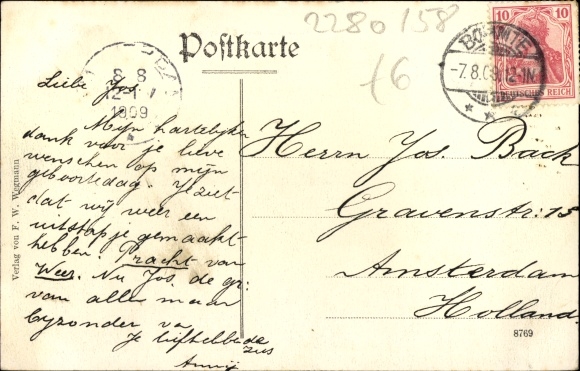 2280158
16
Postkarte
10
10
DEUTSCHES REICH
-7.8.09. 12-1N
8 8
12-1
1909
Liebe Jos.
Mijn hartelijken
dank voor je lieve
wenschen op mijn
geboortedag. U ziet
dat wij weer een
uitstapje gemaakt
hebben. Pracht van
Weer. Nu Jos. de gr.
van alle maar
byzonder va
Je liefhebbende
zus
Herrn Jos. Back
Gravenstr: 15
Amsterdam
Holland
Verlag von F. W. Wegmann
8769